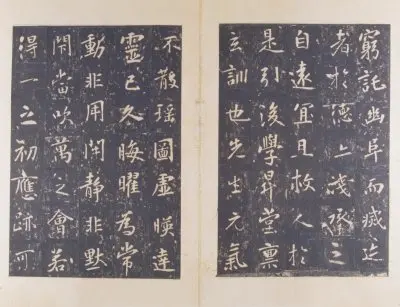 窮託幽阜而滅迹
者於德之
自遠宜且救人於
是引後學昇堂稟
玄訓也先生元氣
不散瑶圖虛映達
靈已久晦曜為常
動非用閒靜非默
當吹萬之會若
得一之初應跡可